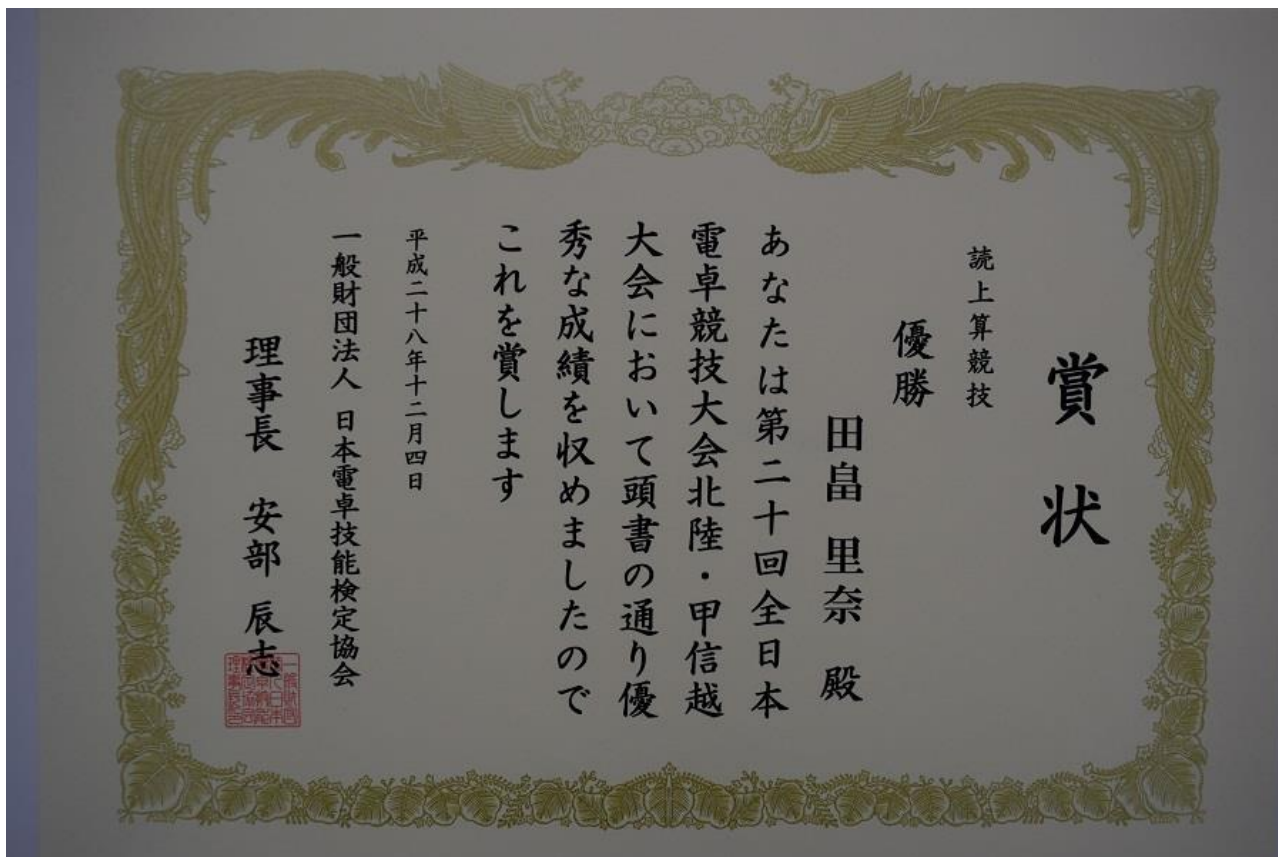 賞状
読上算競技
優勝
田畠 里奈 殿
あなたは第二十回全日本
電卓競技大会北陸・甲信越
大会において頭書の通り優
秀な成績を収めましたので
これを賞します
平成二十八年十二月四日
一般財団法人 日本電卓技能検定協会
理事長 安部 辰志